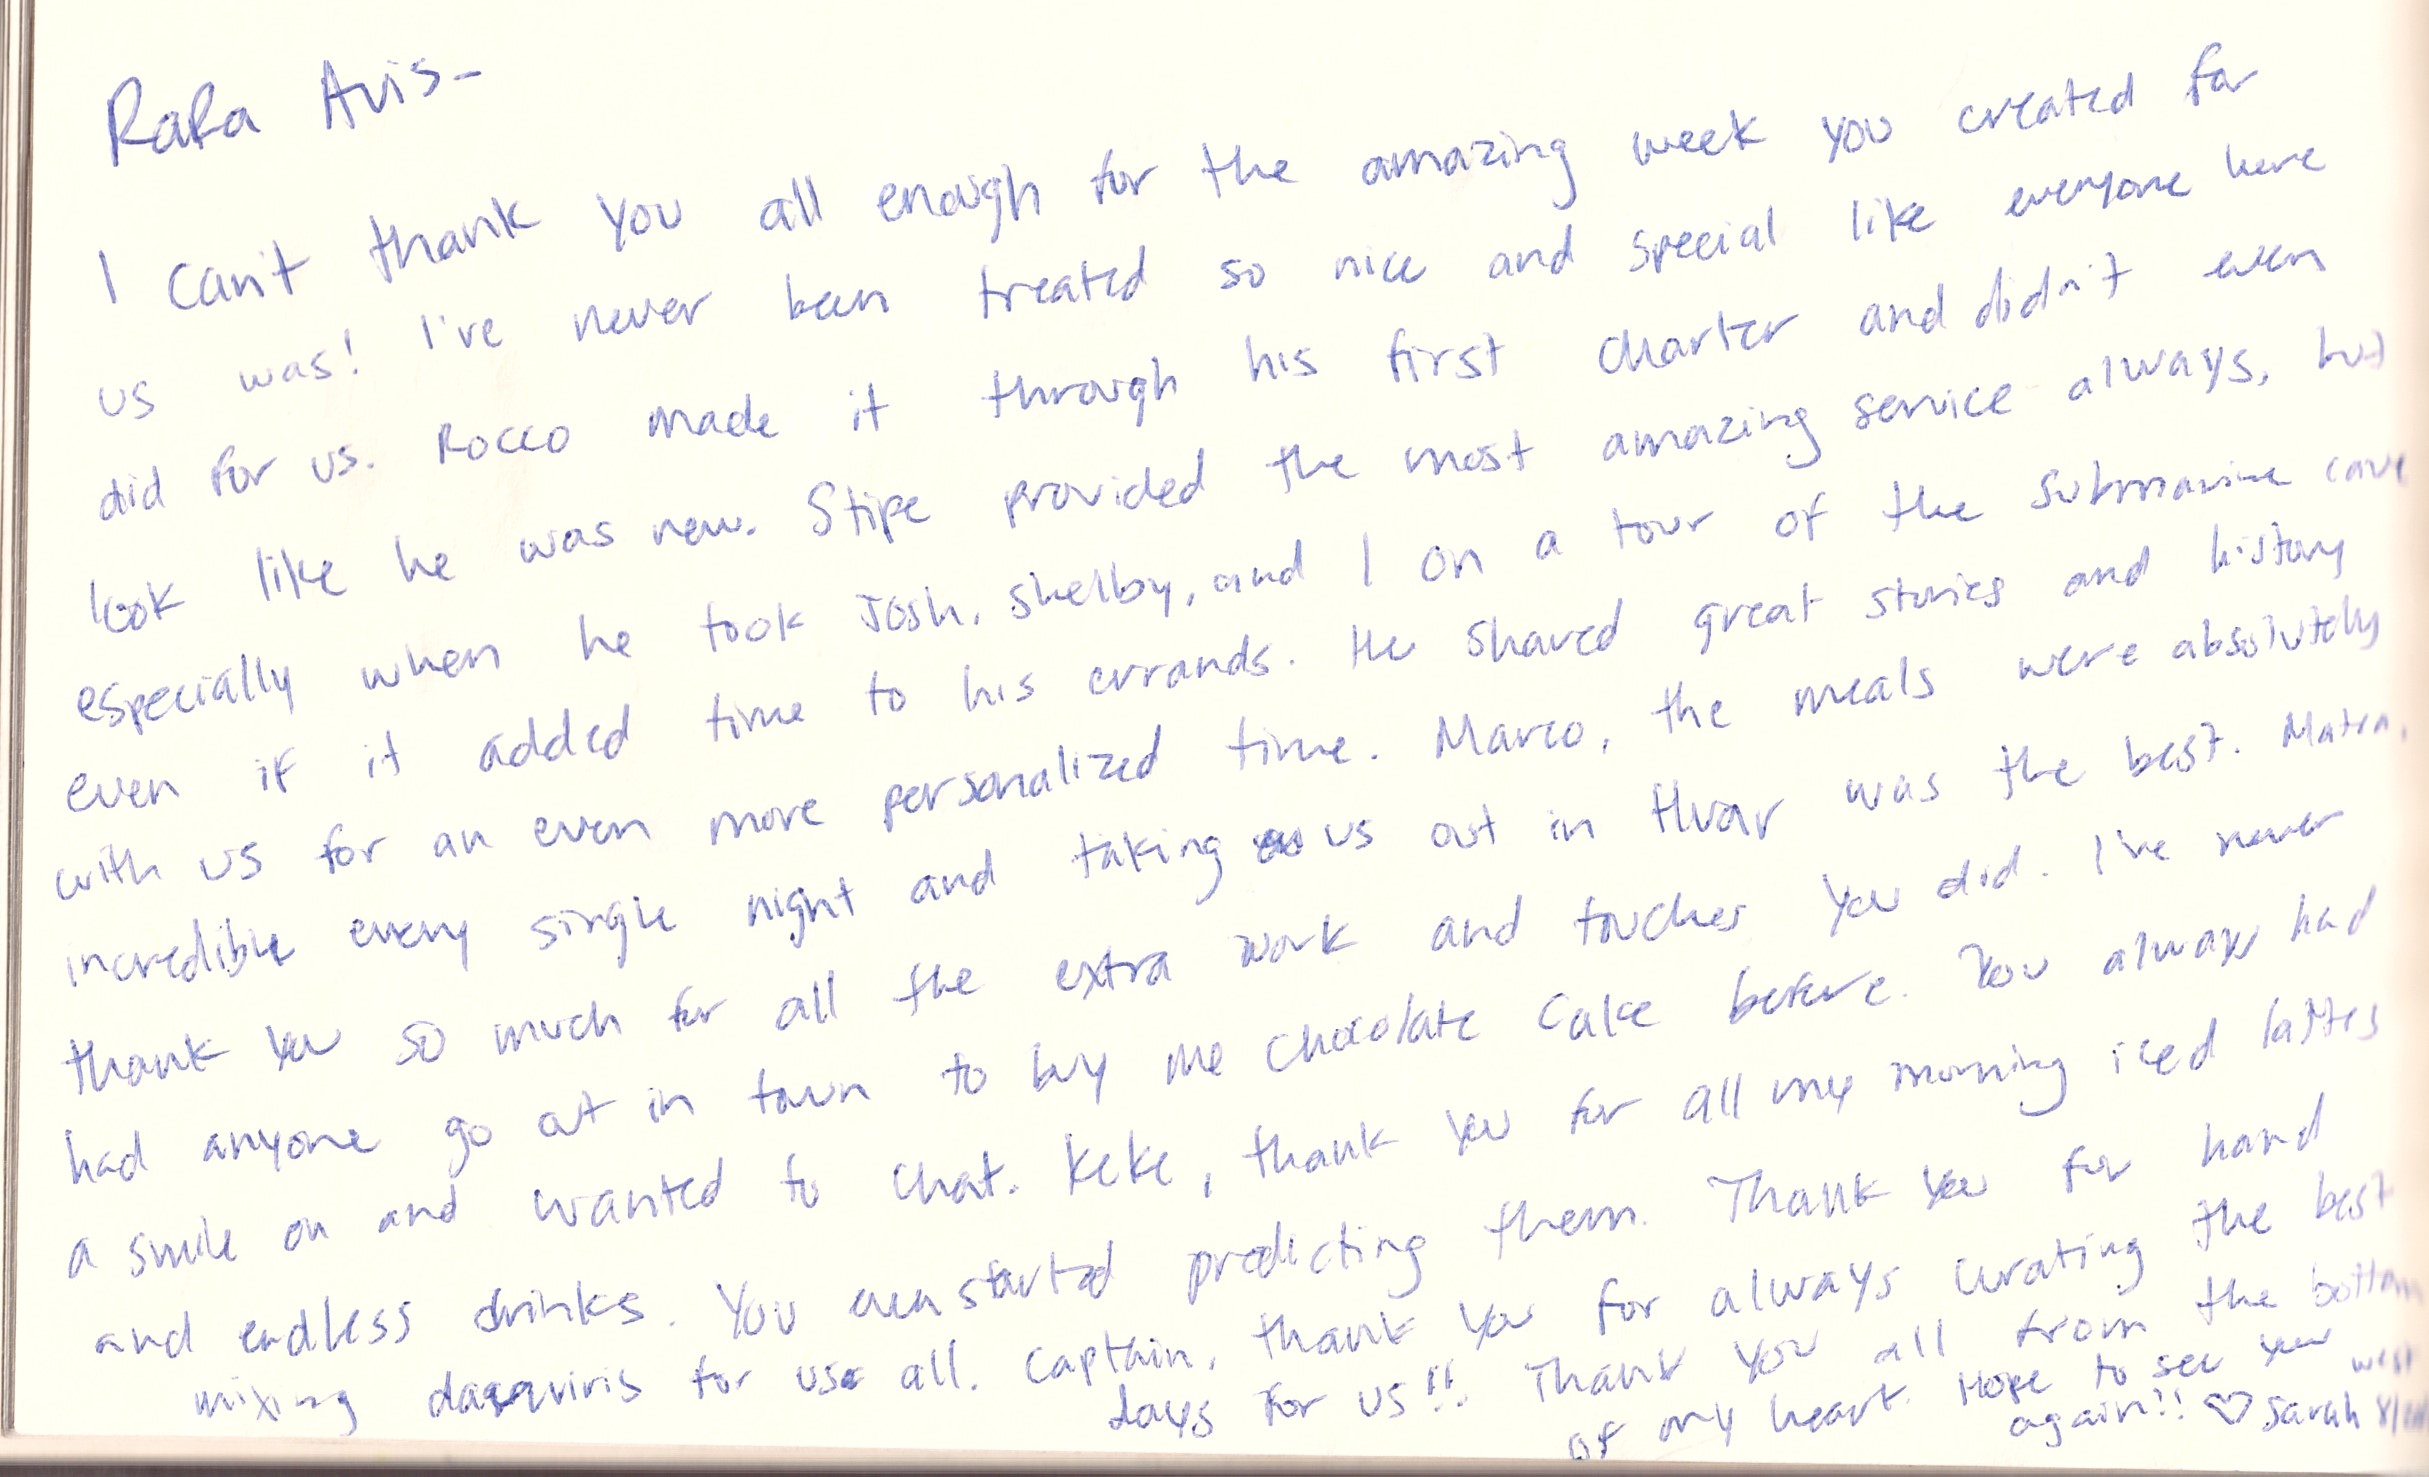 RaRa Avis-
I can't thank you all enough for the amazing week you created for
us was! I've never been treated so nice and special like everyone here
did for us. Rocco made it through his first charter and didn't even
look like he was new. Stipe provided the most amazing service always, but
especially when he took Josh, Shelby, and I on a tour of the submarine cave
even if it added time to his errands. He shared great stories and history
with us for an even more personalized time. Marco, the meals were absolutely
incredible every single night and taking us out in Hvar was the best. 
thank you so much for all the extra work and touches you did. I've never
had anyone go out in town to buy me chocolate cake before. You always had
a smile on and wanted to chat. Keke, thank you for all my morning iced lattes
and endless drinks. You even started predicting them. Thank you for hand
mixing daqquiris for us all. Captain, thank you for always curating the best
days for us!! Thank you all from the bottom
of my heart. Hope to see you
again!! ♡ Sarah West